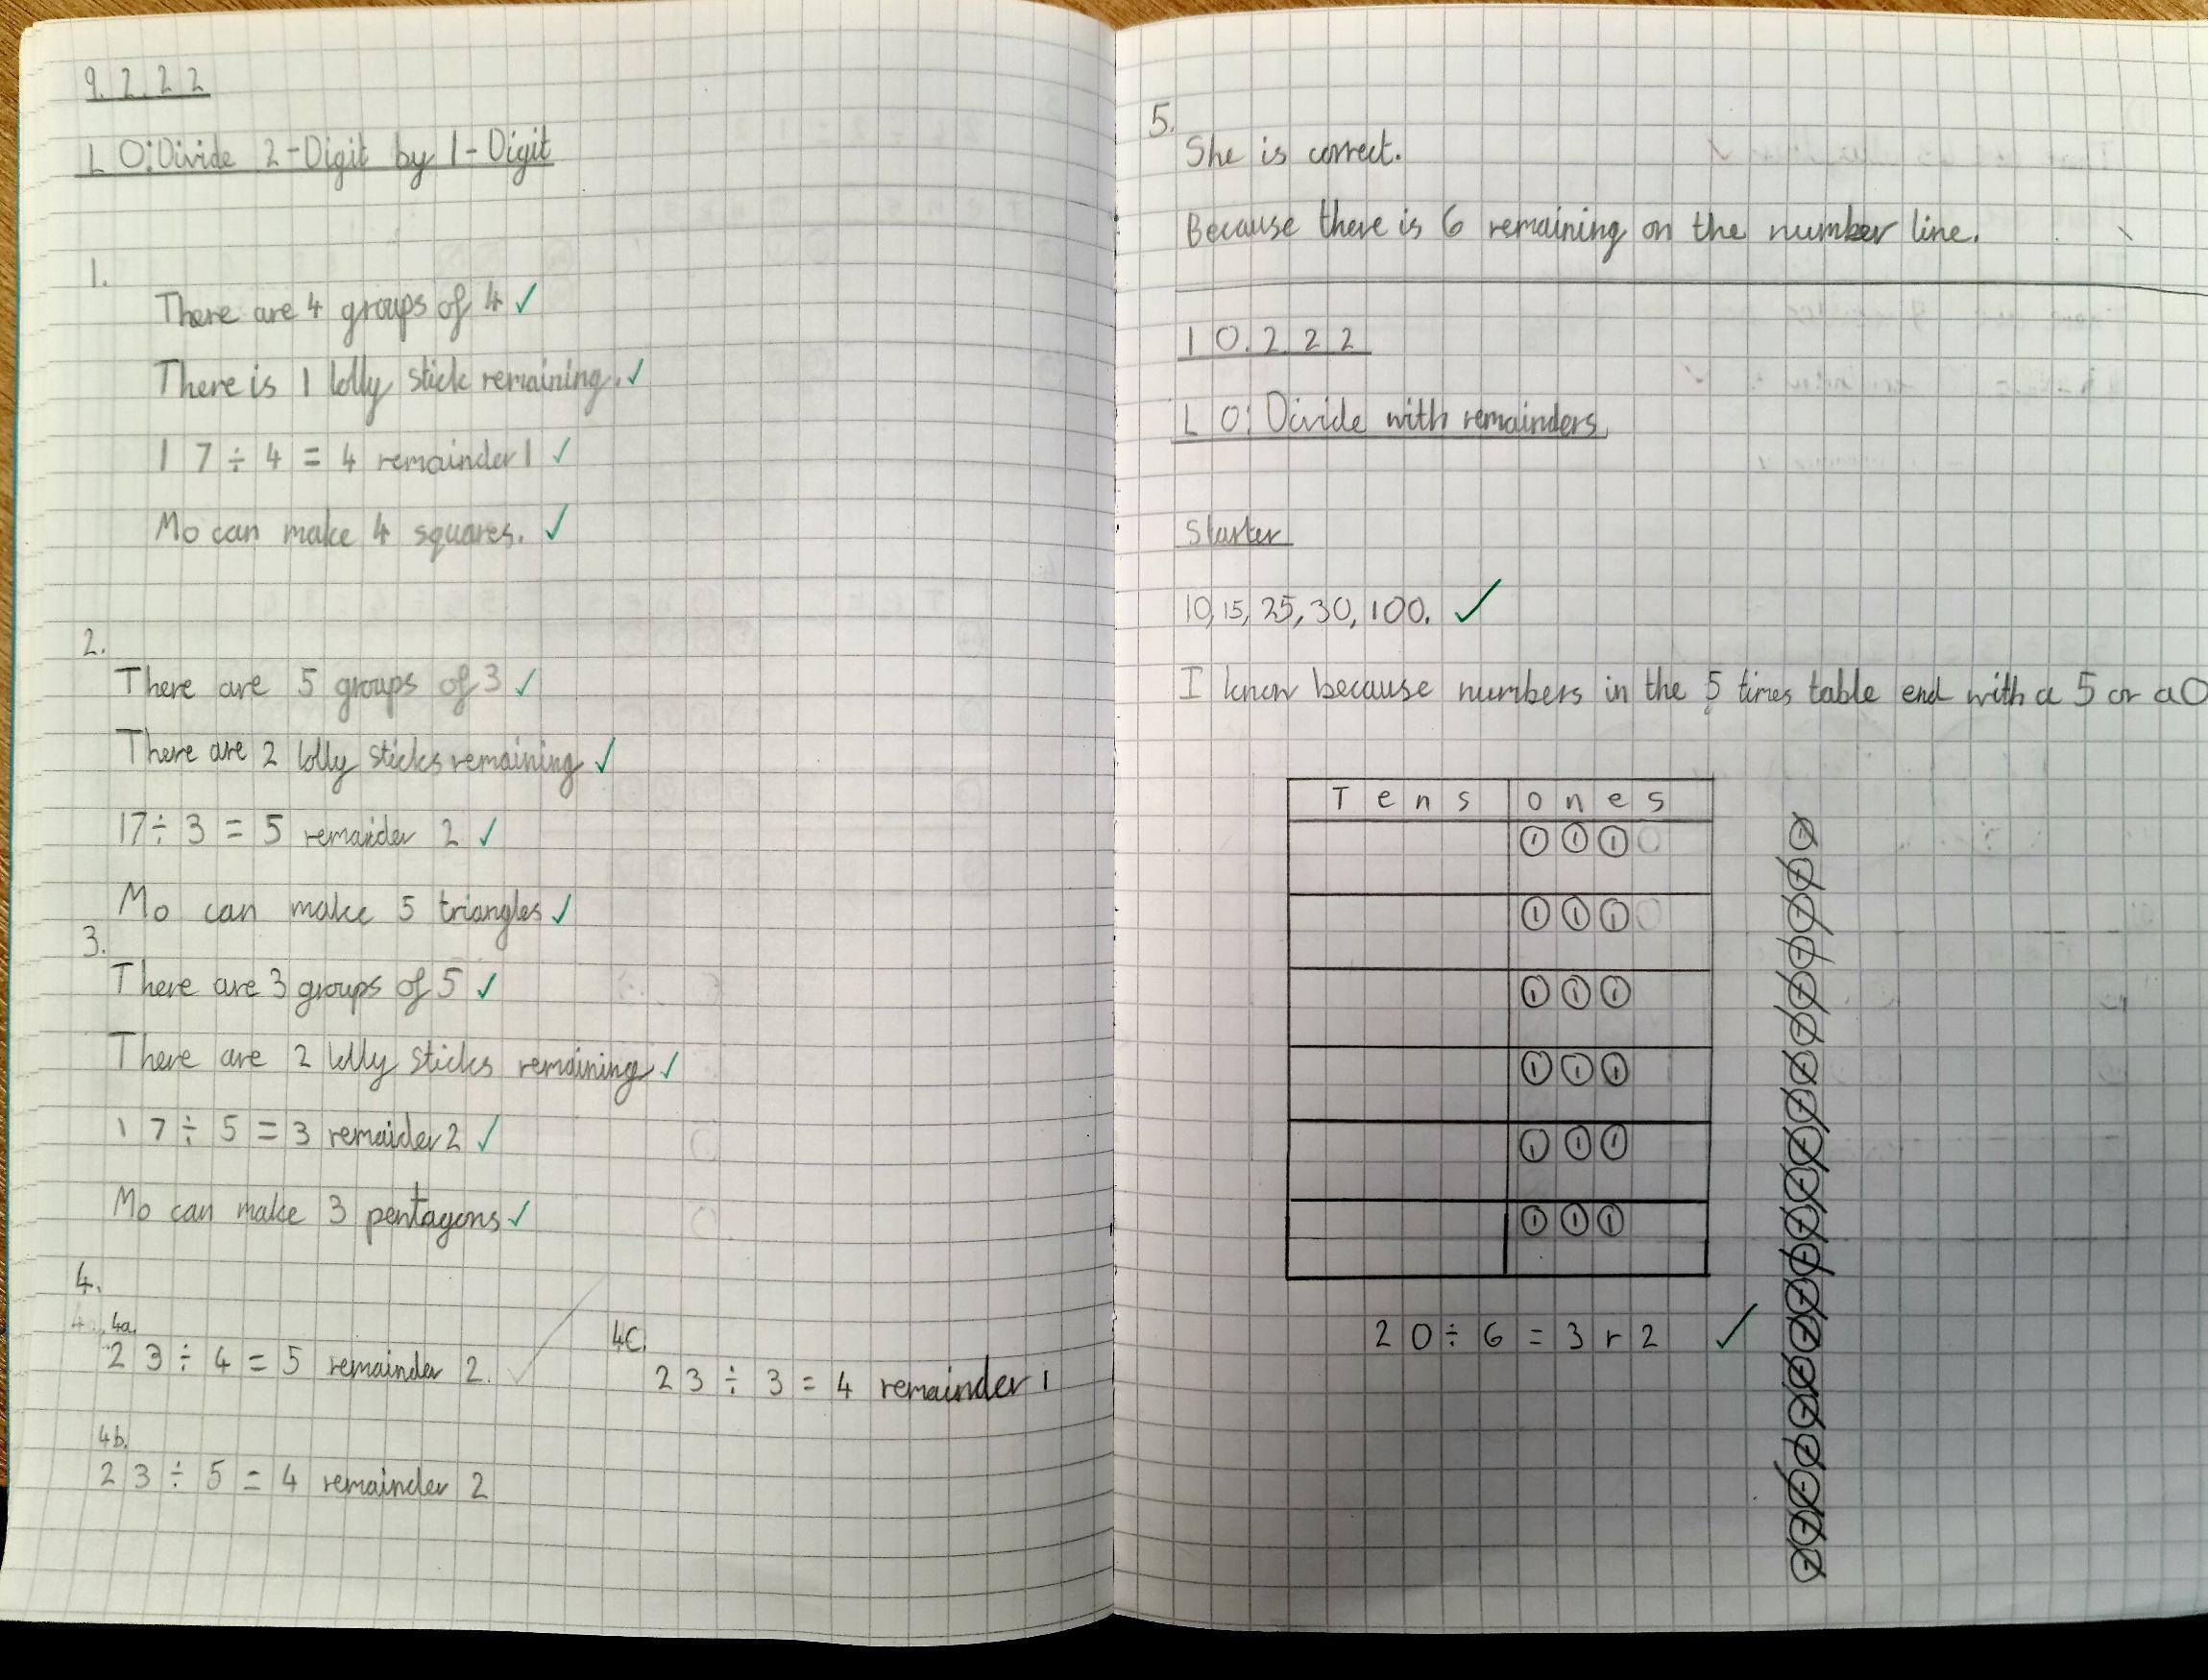 9.2.22
LO: Divide 2-Digit by 1-Digit
1.
There are 4 groups of 4 ✓
There is 1 lolly stick remaining. ✓
17 ÷ 4 = 4 remainder 1 ✓
Mo can make 4 squares. ✓
2.
There are 5 groups of 3 ✓
There are 2 lolly sticks remaining ✓
17 ÷ 3 = 5 remaider 2 ✓
Mo can make 5 triangles ✓
3.
There are 3 groups of 5 ✓
There are 2 lolly sticks remaining ✓
17 ÷ 5 = 3 remaider 2 ✓
Mo can make 3 pentagons ✓
4.
4a.
23 ÷ 4 = 5 remainder 2. ✓
4b.
23 ÷ 5 = 4 remainder 2
4C.
23 ÷ 3 = 4 remainder 1
5.
She is correct.
Because there is 6 remaining on the number line.
10.2.22
LO: Divide with remainders
Starter
10, 15, 25, 30, 100. ✓
I know because numbers in the 5 times table end with a 5 or a 0
Tens ones
1 1 1
1 1 1
1 1 1
1 1 1
1 1 1
1 1 1
20 ÷ 6 = 3 r 2 ✓